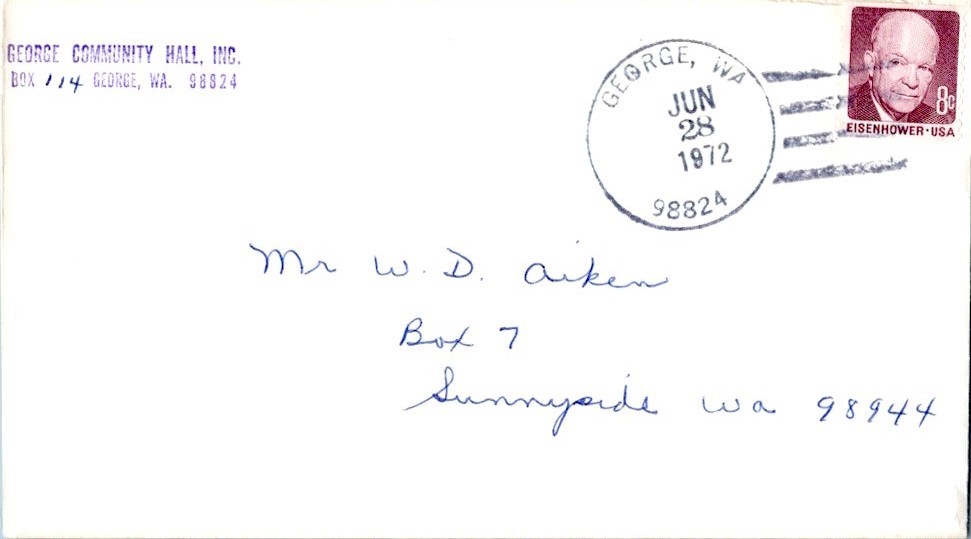 GEORGE COMMUNITY HALL, INC.
BOX 114 GEORGE, WA. 98824
GEORGE, WA
JUN
28
1972
98824
8c
EISENHOWER·USA
Mr W. D. Aiken
Box 7
Sunnyside Wa 98944